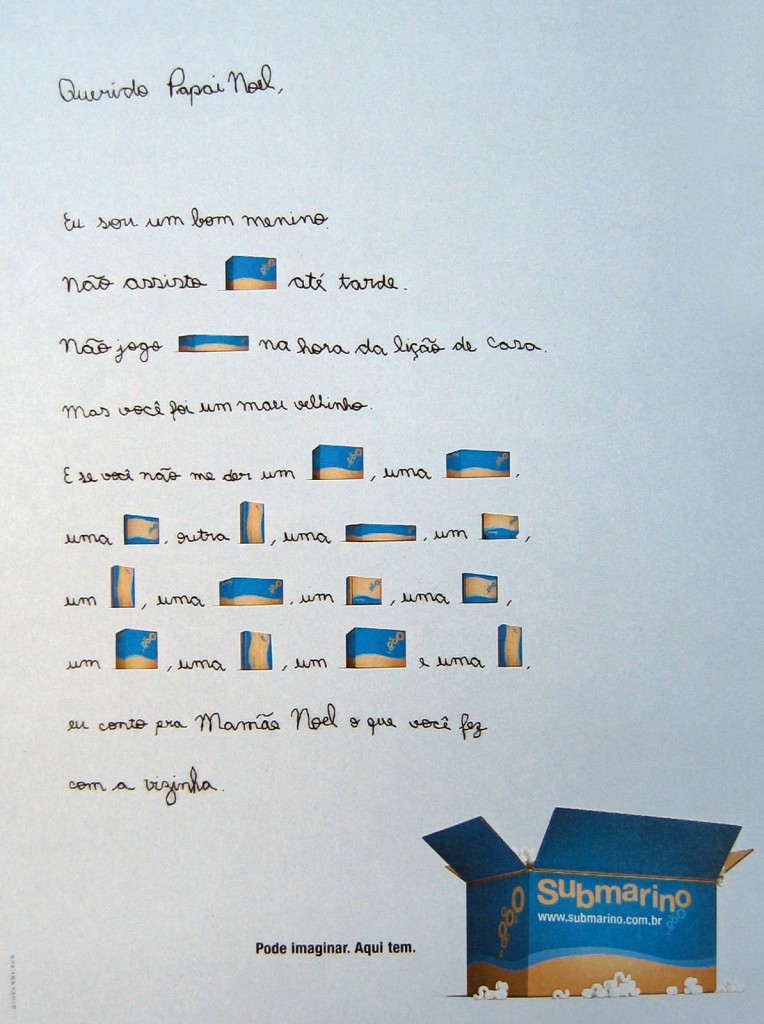 Querido Papai Noel,
Eu sou um bom menino.
Não assisto até tarde.
Não jogo na hora da lição de casa.
Mas você foi um mau velhinho.
E se você não me der um , uma ,
uma , outra , uma , um ,
um , uma , um , uma ,
um , uma , um e uma ,
eu conto pra Mamãe Noel o que você fez
com a vizinha.
Submarino
www.submarino.com.br
Pode imaginar. Aqui tem.